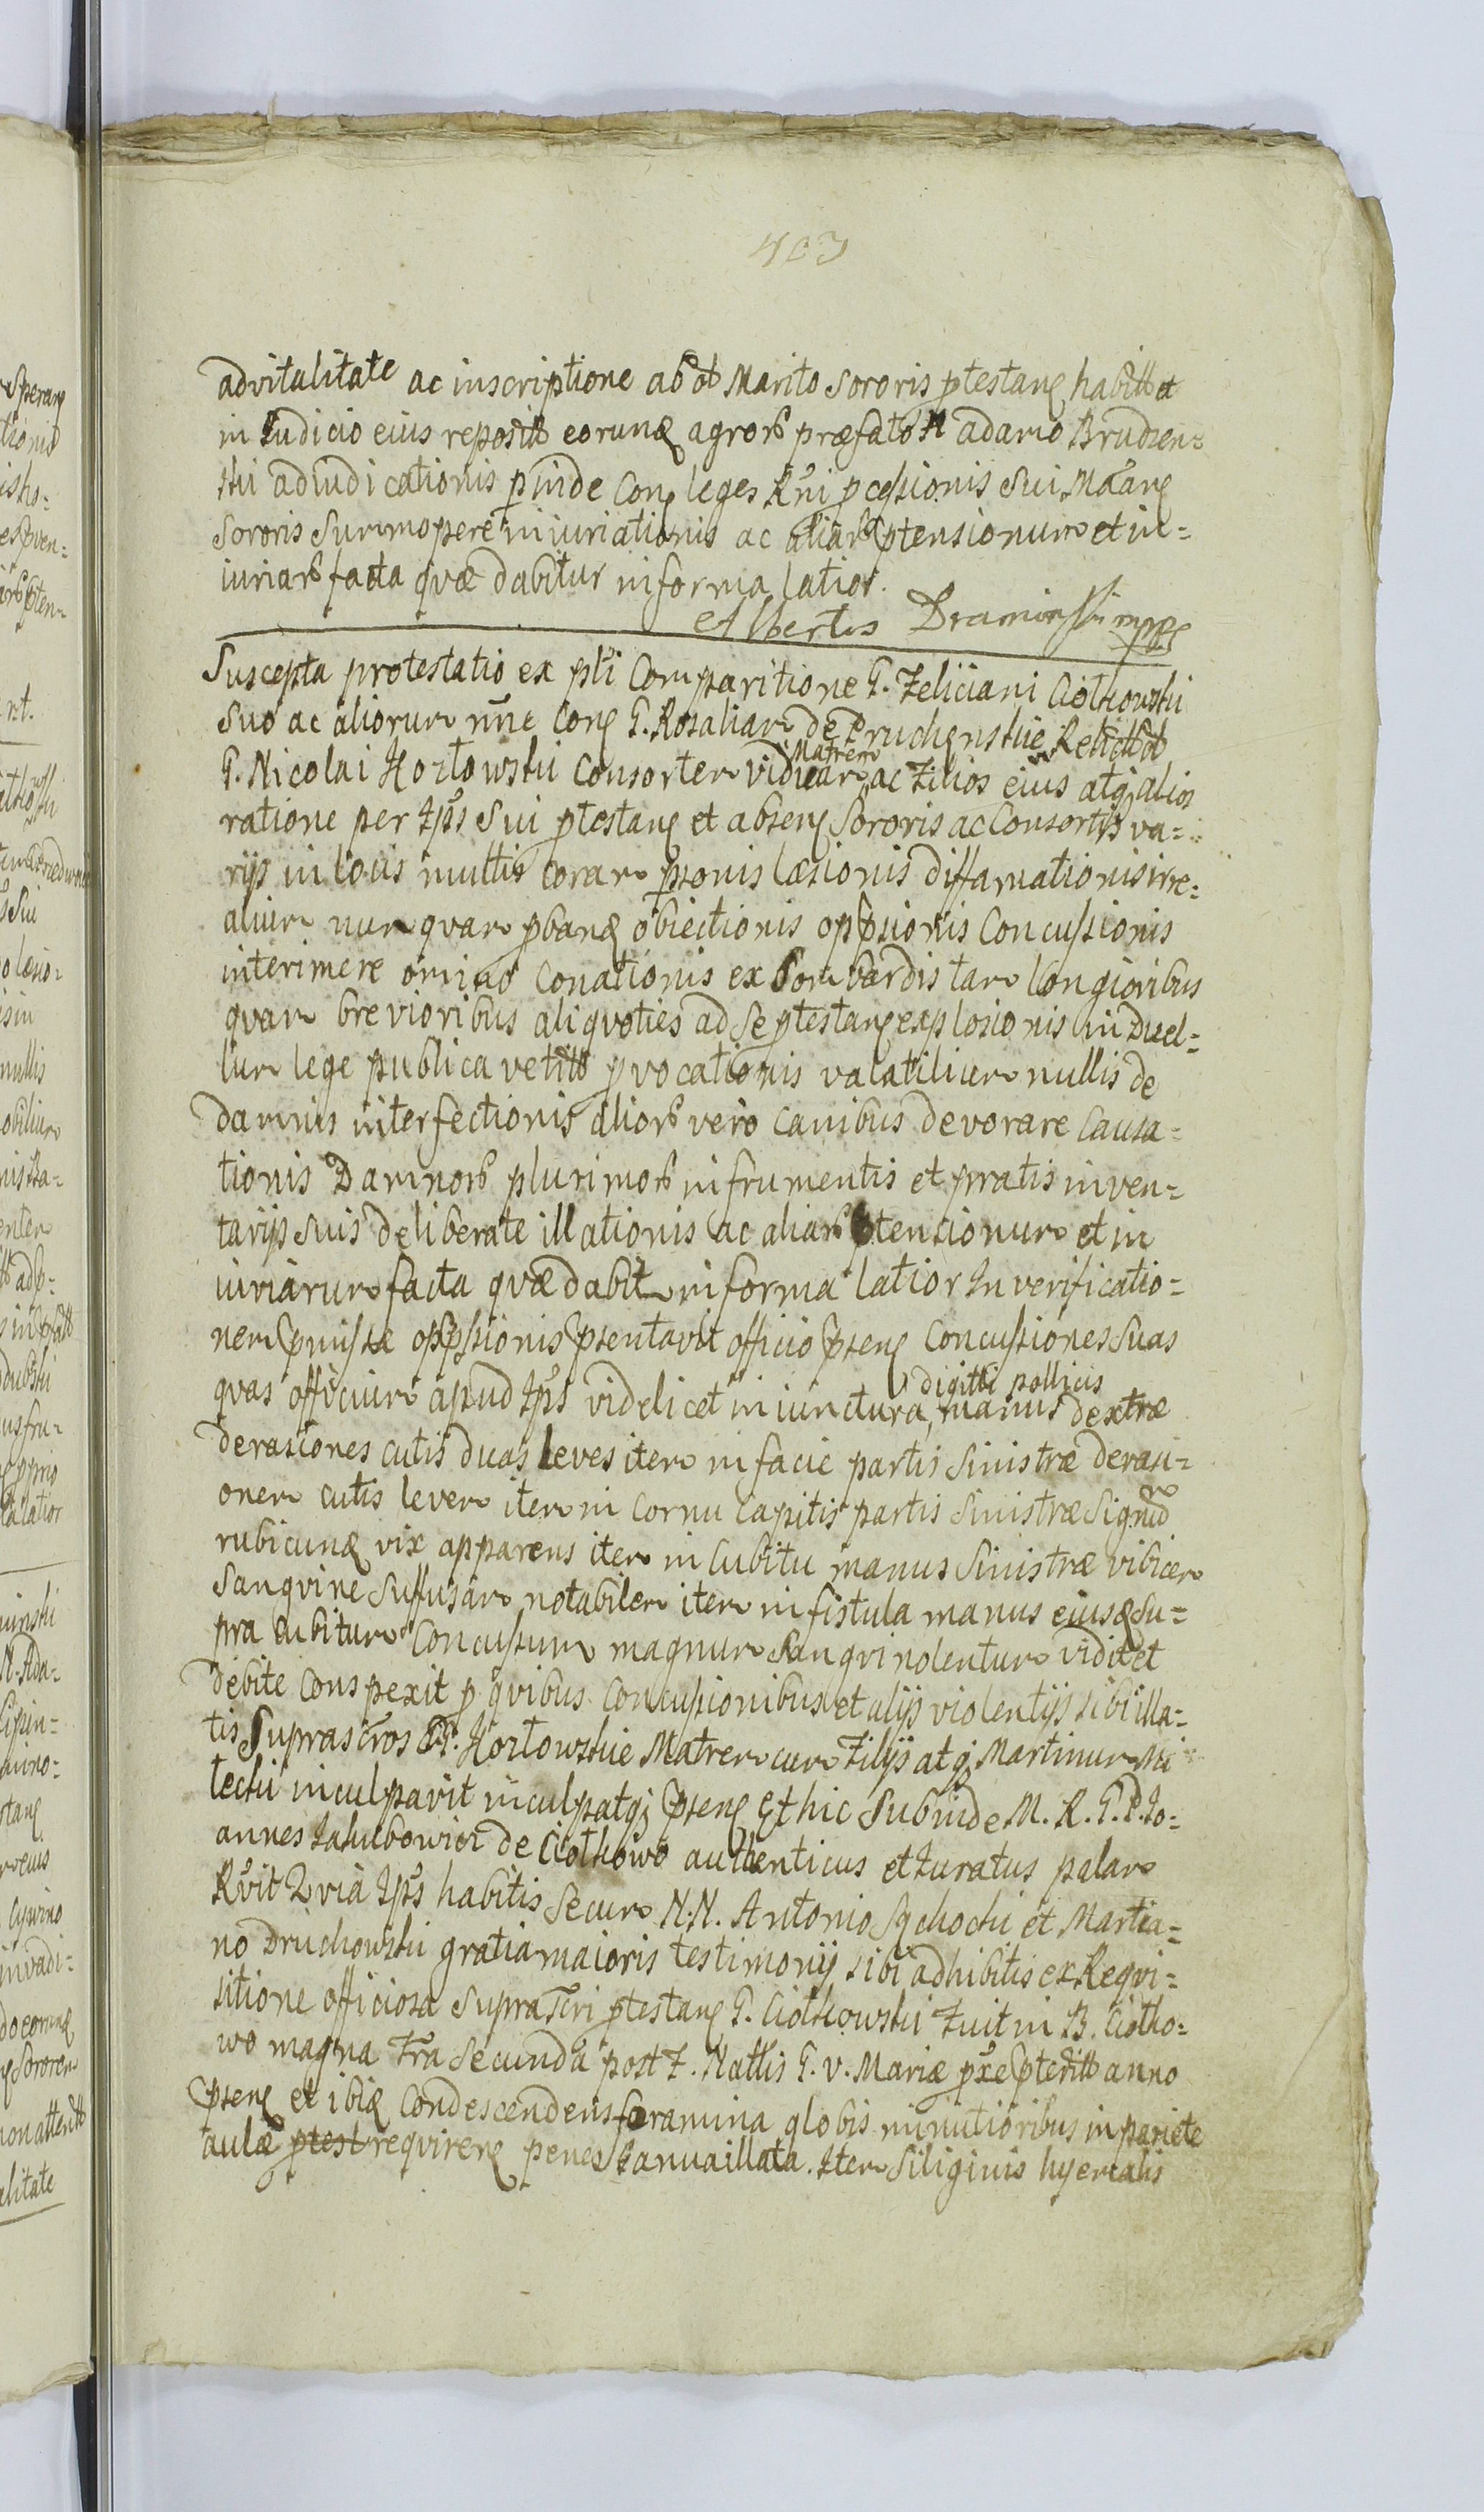 403
advitalitate ac inscriptione ab ol Marito Sororis ptestans habitt et
in Iudicio eius repositt eorunq agrorb præfato N adamo Brudzen-
ski adiudicationis pinde Cons leges Rni pcessionis sui Maans
Sororis Summopere iniuriationis ac aliarb ptensionum et in-
iuriarb facta quæ dabitur in forma latior.
Albertus Draminski mpp
Suscepta protestatio ex pli Comparitione G. Feliciani Ciołkowski
Suo ac aliorum nne Cons G. Rosaliam de Druchenskie Relictt ol
G. Nicolai Kozłowski Consortem viduam Matrem ac Filios eius atq alios
ratione per Ips Sui ptestans et absens Sororis ac Consortis va-
rijs in locis multis coram psonis læsionis diffamationis irre-
alium nunquam pbanq obiectionis oppsionis Concussionis
interimere omino Conationis ex Bombardis tam longioribus
quam brevioribus aliquoties ad se ptestans explosionis in Duel-
lum lege publica vetitt pvocationis valatilium nullis de
damnis interfectionis aliorb vero canibus devorare Causa-
tionis Damnorb plurimorb in frumentis et pratis inven-
tarijs suis deliberate illationis ac aliarb ptensionum et in
iuriarum facta quæ dabit in forma latior In verificatio-
nem pmissæ oppssionis psentavit officio psens Concussiones suas
quas officium apud Ips videlicet in iunctura digitti pollicis manus dextræ
derasiones cutis duas leves item in facie partis Sinistræ derasi-
onem cutis levem item in Cornu Capitis partis Sinistræ Signum
rubicunq vix apparens item in Cubitu manus Sinistræ vibicem
Sanqvine Suffusam notabilem item in fistula manus eiusq Su-
pra cubitum Concussum magnum Sanqvinolentum vidit et
debite conspexit p quibus Concussionibus et alijs violentijs sibi illa-
tis Suprascros GG. Kozłowskie Matrem cum Filijs atq Martinum Mi
lecki inculpavit inculpatq psens Et hic Subinde M. R. G. P. Io-
annes Jakubowicz de Ciołkowo authenticus et Iuratus palam
Rvit Qvia Ips habitis Secum N.N. Antonio Sychocki et Martia-
no Druchowski gratia maioris testimonij sibi adhibitis ex Reqvi-
sitione officiosa Suprascri ptestans G. Ciołkowski Fuit in B. Ciołko-
wo magna Fra Secunda post F. Nattis G. v. Mariæ pxe pteritt anno
psens et ibiq Condescendens foramina globis minutioribus in pariete
aulæ ptest reqvirens penes Ianua illata. Item Siliginis hyemalis